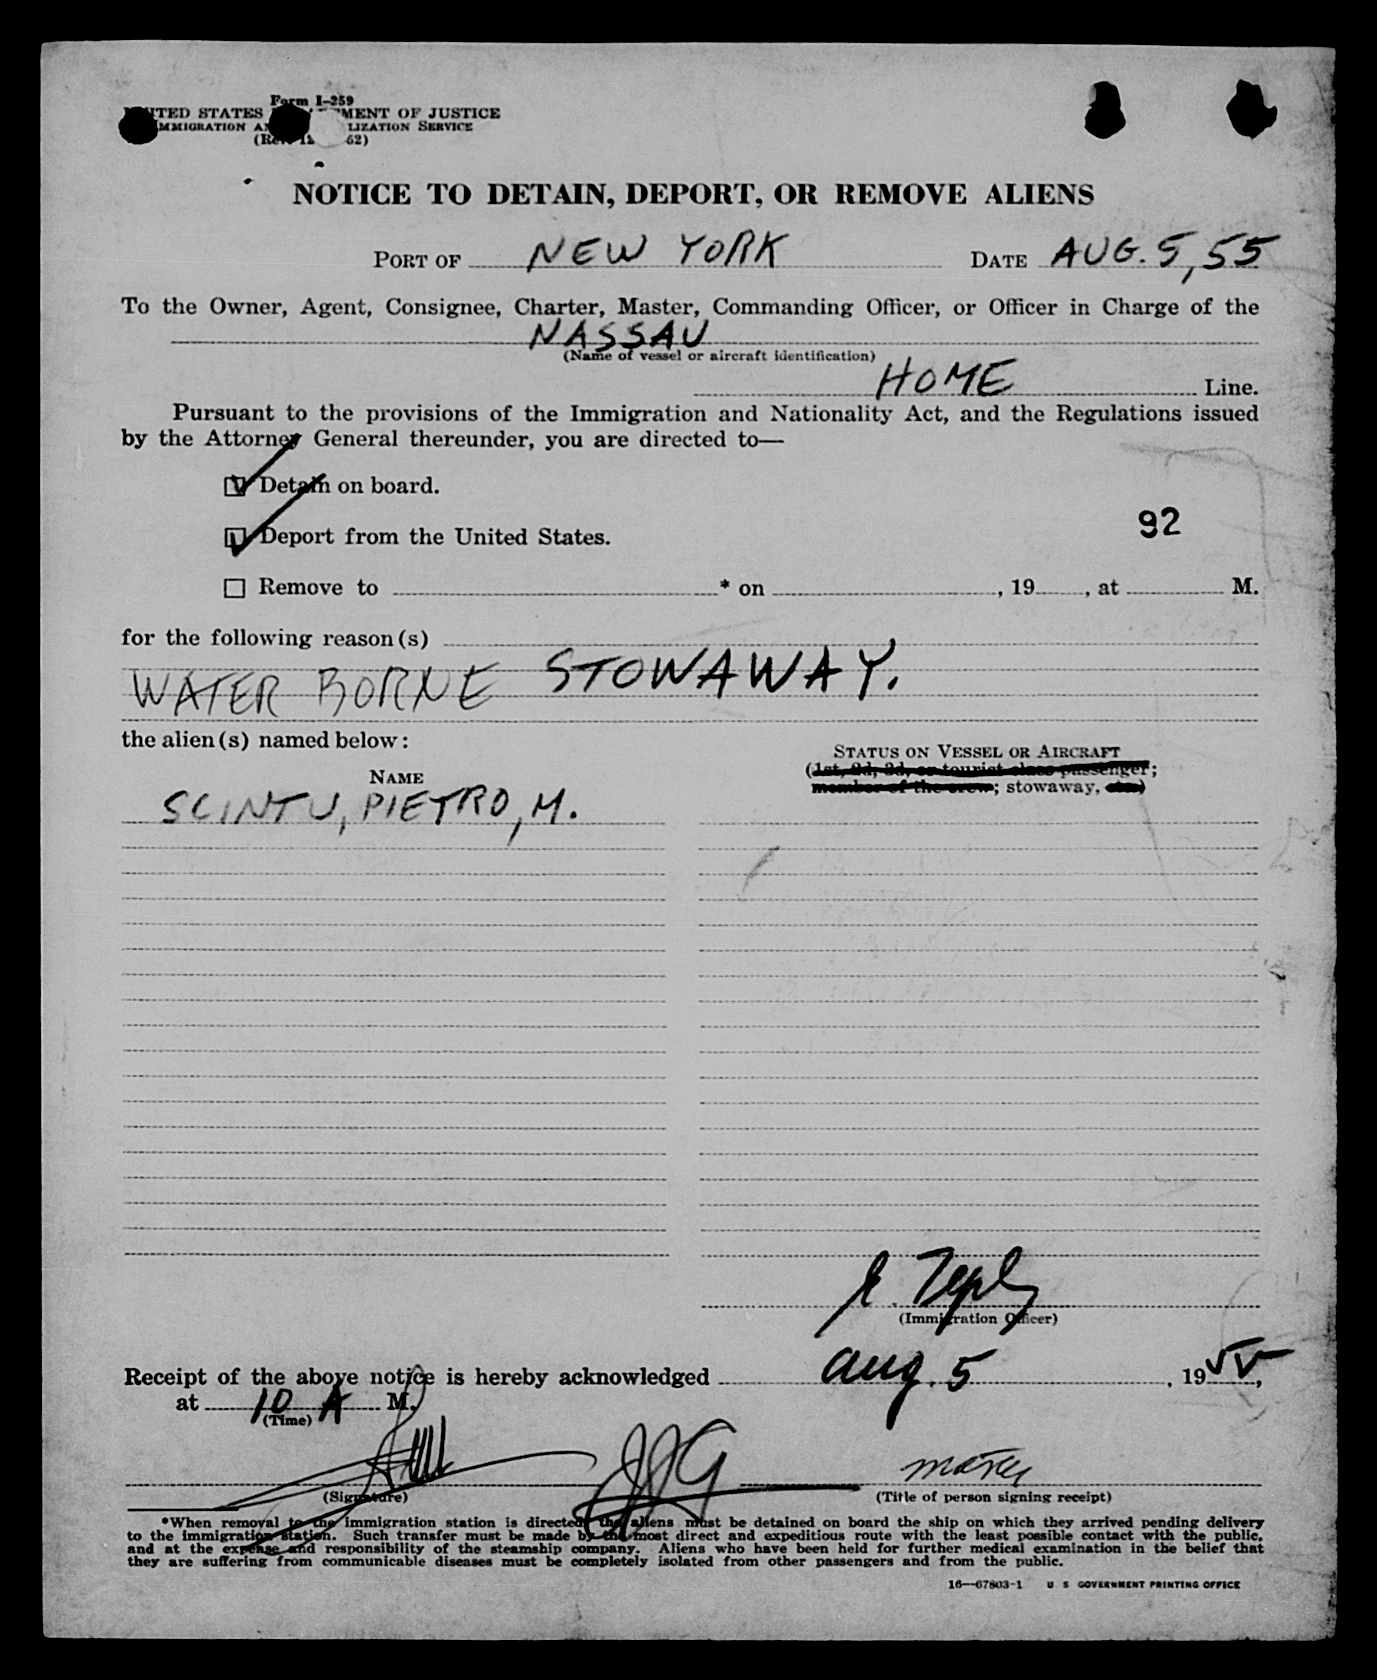 Form I-259
UNITED STATES MENT OF JUSTICE
IMMIGRATION LIZATION SERVICE
NOTICE TO DETAIN, DEPORT, OR REMOVE ALIENS
PORT OF NEW YORK DATE AUG. 5, 55
To the Owner, Agent, Consignee, Charter, Master, Commanding Officer, or Officer in Charge of the
NASSAU
(Name of vessel or aircraft identification)
HOME Line.
Pursuant to the provisions of the Immigration and Nationality Act, and the Regulations issued
by the Attorney General thereunder, you are directed to—
Detain on board.
92
Deport from the United States.
Remove to * on , 19 , at M.
for the following reason(s)
WATER BORNE STOWAWAY.
the alien(s) named below:
STATUS ON VESSEL OR AIRCRAFT
(1st, 2d, 3d, or tourist class passenger;
member of the crew; stowaway, etc.)
NAME
SCINTU, PIETRO, M.
(Immigration Officer)
Receipt of the above notice is hereby acknowledged Aug. 5, 1955,
at 10 A M.
(Time)
(Signature) (Title of person signing receipt)
*When removal to the immigration station is directed, the aliens must be detained on board the ship on which they arrived pending delivery
to the immigration station. Such transfer must be made by the most direct and expeditious route with the least possible contact with the public,
and at the expense and responsibility of the steamship company. Aliens who have been held for further medical examination in the belief that
they are suffering from communicable diseases must be completely isolated from other passengers and from the public.
16—67803-1 U S GOVERNMENT PRINTING OFFICE